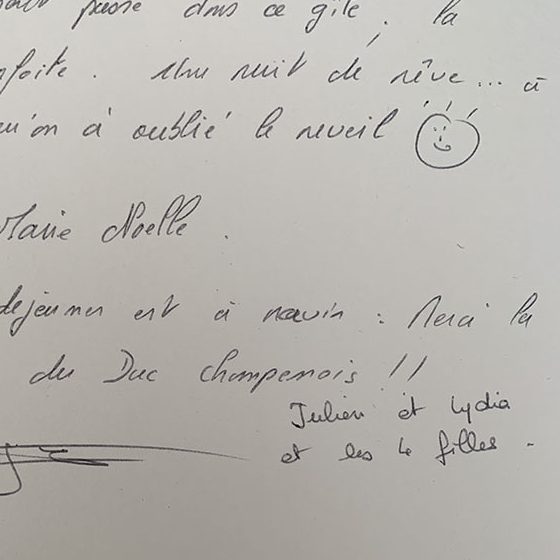 passé dans ce gîte, la
nfaite. Une nuit de rêve... à
u'on à oublié le reveil
Marie Noelle.
dejeuner est à ravir : Merci la
du Duc Champenois !!
Julien et Lydia
et les 4 filles.